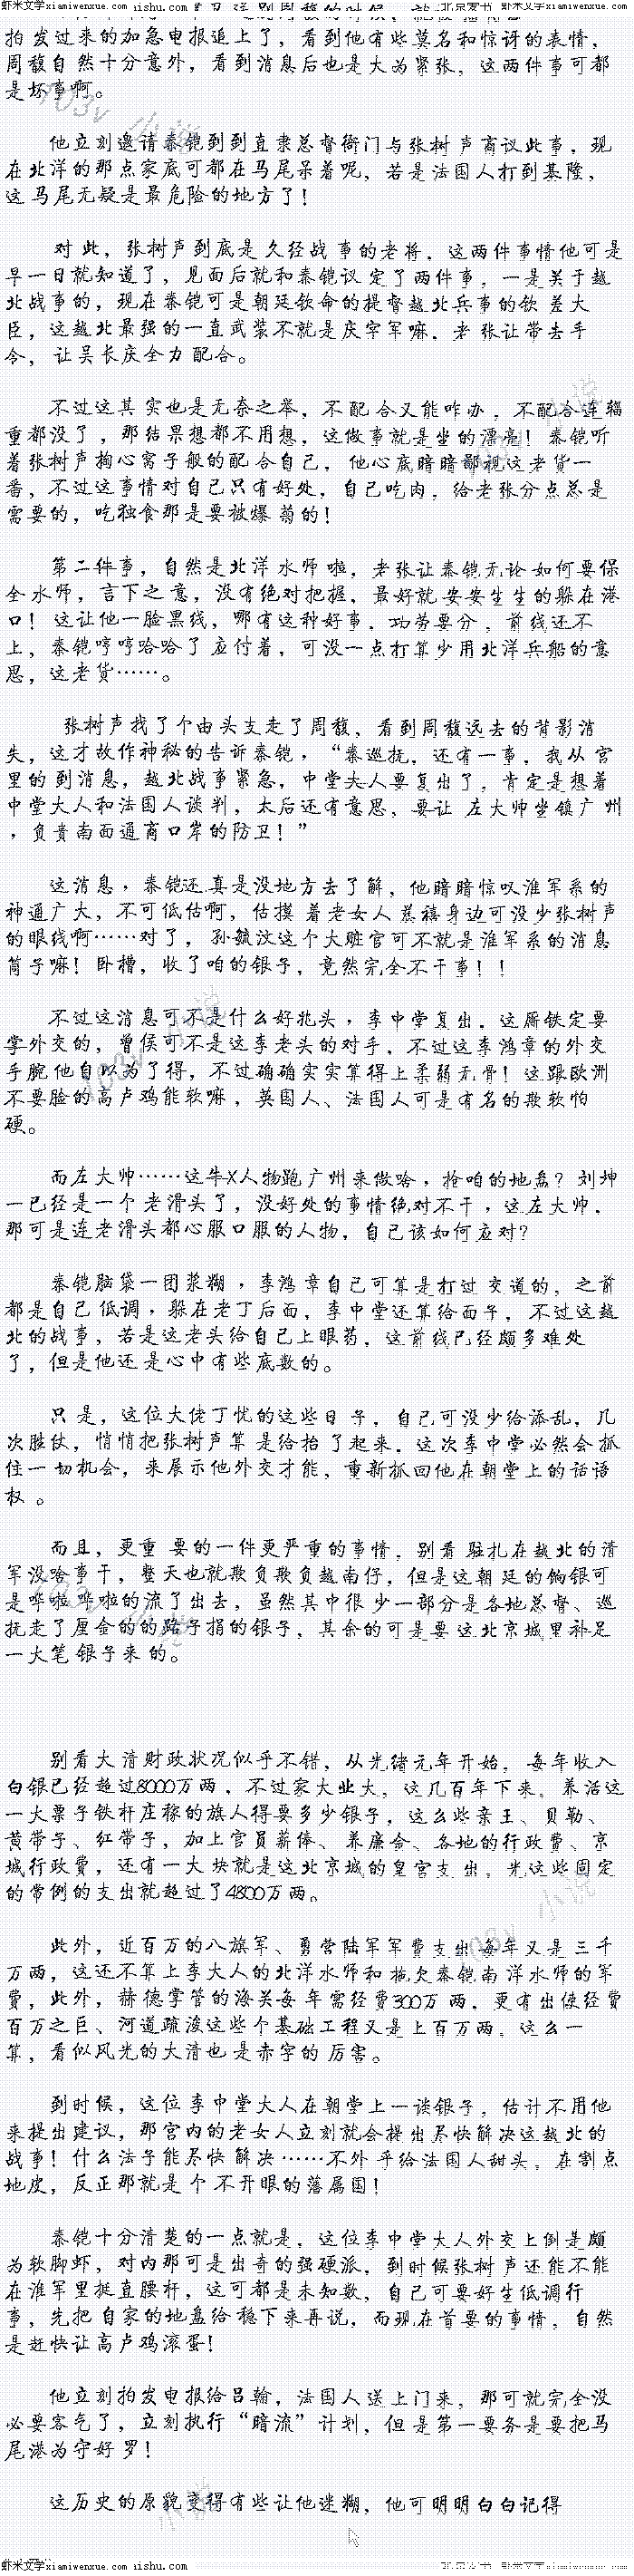 虾米文学xiamiwenxue.com
拍发过来的加急电报追上了，看到他有些莫名和惊讶的表情，
周馥自然十分意外，看到消息后也是大为紧张，这两件事可都
是坏事啊。
他立刻邀请秦铠到到直隶总督衙门与张树声商议此事，现
在北洋的那点家底可都在马尾呆着呢，若是法国人打到基隆，
这马尾无疑是最危险的地方了！
对此，张树声到底是久经战事的老将，这两件事情他可是
早一日就知道了，见面后就和秦铠议定了两件事，一是关于越
北战事的，现在秦铠可是朝廷钦命的提督越北兵事的钦差大
臣，这越北最强的一直武装不就是庆字军嘛，老张让带去手
令，让吴长庆全力配合。
不过这其实也是无奈之举，不配合又能咋办，不配合连辎
重都没了，那结果想都不用想，这做事就是坐的漂亮！秦铠听
着张树声掏心窝子般的配合自己，他心底暗暗鄙视这老货一
番，不过这事情对自己只有好处，自己吃肉，给老张分点总是
需要的，吃独食那是要被爆菊的！
第二件事，自然是北洋水师啦，老张让秦铠无论如何要保
全水师，言下之意，没有绝对把握，最好就安安生生的躲在港
口！这让他一脸黑线，哪有这种好事，功劳要分，前线还不
上，秦铠哼哼哈哈了应付着，可没一点打算少用北洋兵船的意
思，这老货……。
张树声找了个由头支走了周馥，看到周馥远去的背影消
失，这才故作神秘的告诉秦铠，“秦巡抚，还有一事，我从宫
里的到消息，越北战事紧急，中堂大人要复出了，肯定是想着
中堂大人和法国人谈判，太后还有意思，要让左大帅坐镇广州
，负责南面通商口岸的防卫！”
这消息，秦铠还真是没地方去了解，他暗暗惊叹淮军系的
神通广大，不可低估啊，估摸着老女人慈禧身边可没少张树声
的眼线啊……对了，孙毓汶这个大赃官可不就是淮军系的消息
筒子嘛！卧槽，收了咱的银子，竟然完全不干事！！
不过这消息可不是什么好兆头，李中堂复出，这厮铁定要
掌外交的，曾侯可不是这李老头的对手，不过这李鸿章的外交
手腕他自以为了得，不过确确实实算得上柔弱无骨！这跟欧洲
不要脸的高卢鸡能软嘛，英国人、法国人可是有名的欺软怕
硬。
而左大帅……这牛X人物跑广州来做啥，抢咱的地盘？刘坤
一已经是一个老滑头了，没好处的事情绝对不干，这左大帅，
那可是连老滑头都心服口服的人物，自己该如何应对？
秦铠脑袋一团浆糊，李鸿章自己可算是打过交道的，之前
都是自己低调，躲在老丁后面，李中堂还算给面子，不过这越
北的战事，若是这老头给自己上眼药，这前线已经颇多难处
了，但是他还是心中有些底数的。
只是，这位大佬丁忧的这些日子，自己可没少给添乱，几
次胜仗，悄悄把张树声算是给抬了起来，这次李中堂必然会抓
住一切机会，来展示他外交才能，重新抓回他在朝堂上的话语
权。
而且，更重要的一件更严重的事情，别看驻扎在越北的清
军没啥事干，整天也就欺负欺负越南仔，但是这朝廷的饷银可
是哗啦哗啦的流了出去，虽然其中很少一部分是各地总督、巡
抚走了厘金的的路子捐的银子，其余的可是要这北京城里补足
一大笔银子来的。
别看大清财政状况似乎不错，从光绪元年开始，每年收入
白银已经超过8000万两，不过家大业大，这几百年下来，养活这
一大票子铁杆庄稼的旗人得要多少银子，这么些亲王、贝勒、
黄带子、红带子，加上官员薪俸、养廉金、各地的行政费、京
城行政费，还有一大块就是这北京城的皇宫支出，光这些固定
的常例的支出就超过了4800万两。
此外，近百万的八旗军、勇营陆军军费支出每年又是三千
万两，这还不算上李大人的北洋水师和拖欠秦铠南洋水师的军
费，此外，赫德掌管的海关每年需经费300万两，更有出使经费
百万之巨、河道疏浚这些个基础工程又是上百万两，这么一
算，看似风光的大清也是赤字的厉害。
到时候，这位李中堂大人在朝堂上一谈银子，估计不用他
来提出建议，那宫内的老女人立刻就会提出尽快解决这越北的
战事！什么法子能尽快解决……不外乎给法国人甜头，在割点
地皮，反正那就是个不开眼的藩属国！
秦铠十分清楚的一点就是，这位李中堂大人外交上倒是颇
为软脚虾，对内那可是出奇的强硬派，到时候张树声还能不能
在淮军里挺直腰杆，这可都是未知数，自己可要好生低调行
事，先把自家的地盘给稳下来再说，而现在首要的事情，自然
是赶快让高卢鸡滚蛋！
他立刻拍发电报给吕翰，法国人送上门来，那可就完全没
必要客气了，立刻执行“暗流”计划，但是第一要务是要把马
尾港为守好罗！
这历史的原貌变得有些让他迷糊，他可明明白白记得
虾米文学xiamiwenxue.com